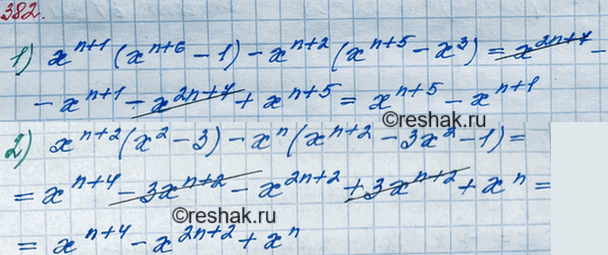 382.
1) x^{n+1} (x^{n+6} - 1) - x^{n+2} (x^{n+5} - x^3) = x^{2n+7} -
- x^{n+1} - x^{2n+7} + x^{n+5} = x^{n+5} - x^{n+1}
©reshak.ru
2) x^{n+2} (x^2 - 3) - x^n (x^{n+2} - 3x^2 - 1) =
= x^{n+4} - 3x^{n+2} - x^{2n+2} + 3x^{n+2} + x^n =
©reshak.ru
= x^{n+4} - x^{2n+2} + x^n